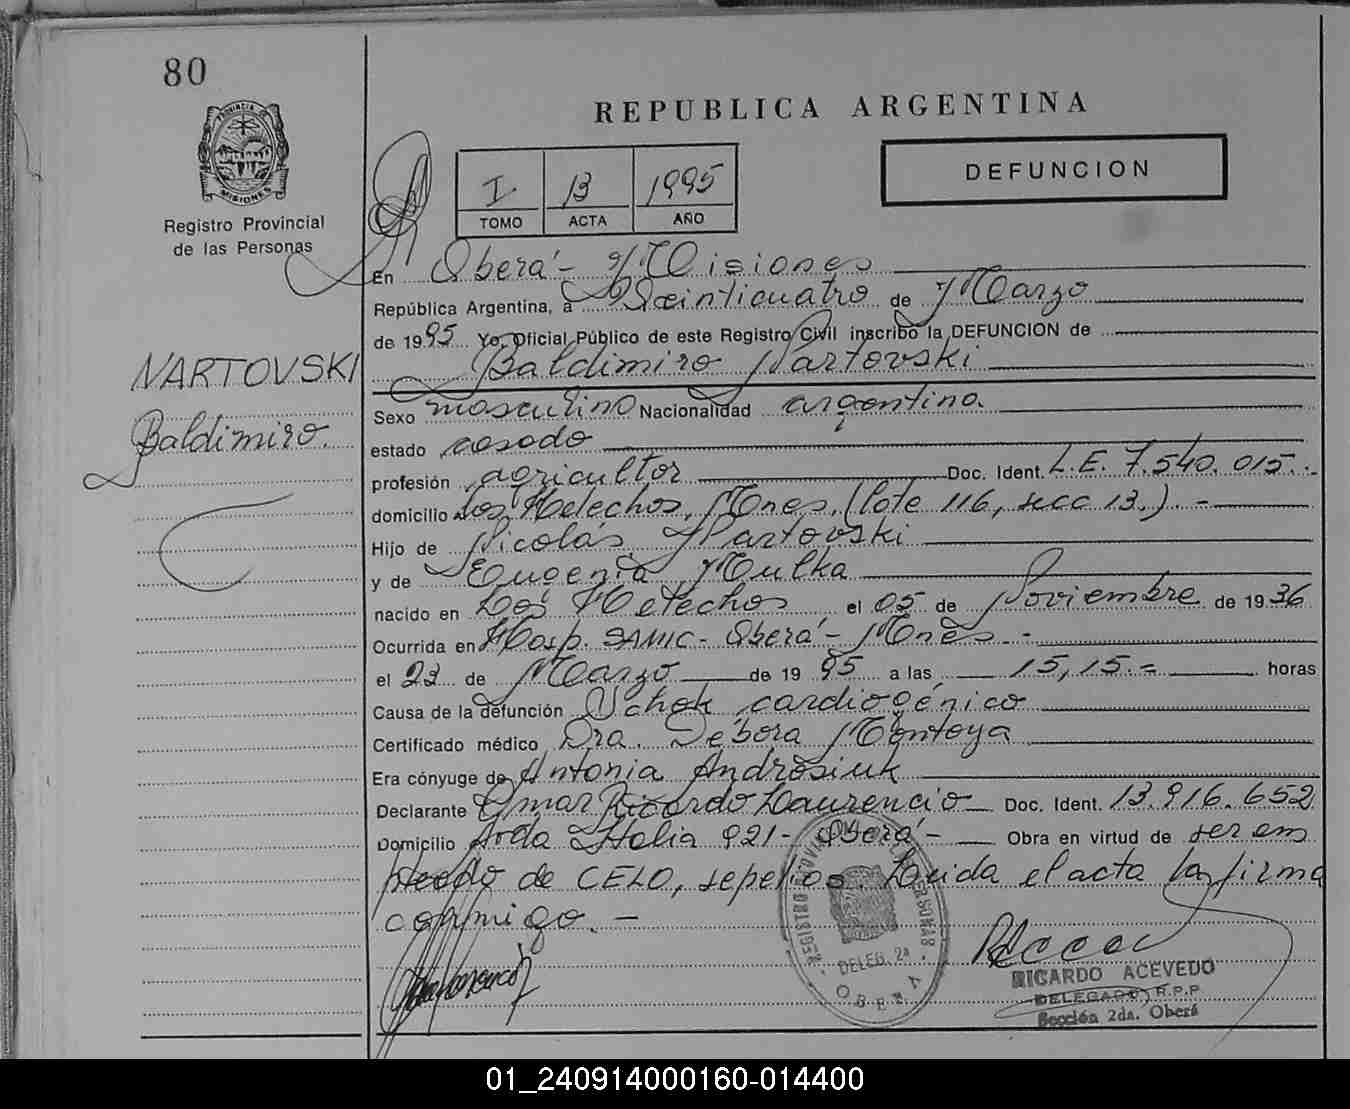 80
PROVINCIA DE
MISIONES
Registro Provincial
de las Personas
REPUBLICA ARGENTINA
DEFUNCION
I 13 1995
TOMO ACTA AÑO
En Oberá - Misiones
República Argentina, a Veinticuatro de Marzo
de 1995 Yo, Oficial Público de este Registro Civil inscribo la DEFUNCION de
Baldimiro Nartovski
NARTOVSKI
Baldimiro.
Sexo masculino Nacionalidad argentino.
estado casado
profesión agricultor Doc. Ident. L.E. 7.540.015.-
domicilio Los Helechos, Mnes. (lote 116, secc 13.) -
Hijo de Nicolás Nartovski
y de Eugenia Mulka
nacido en Los Helechos el 05 de Noviembre de 1936
Ocurrida en Hosp. SAMIC - Oberá - Mnes -
el 23 de Marzo de 1995 a las 15,15.- horas
Causa de la defunción Schok cardiogénico
Certificado médico Dra. Débora Montoya
Era cónyuge de Antonia Androsiuk
Declarante Omar Ricardo Laurencio Doc. Ident. 13.916.652
Domicilio Avda Italia 921 - Oberá - Obra en virtud de ser em
pleado de CELO, sepelios. Leída el acta la firma
conmigo. -
REGISTRO PROVINCIAL DE LAS PERSONAS
DELEG. 2ª
OBERA
RICARDO ACEVEDO
DELEGADO R.P.P
Sección 2da. Oberá
01_240914000160-014400